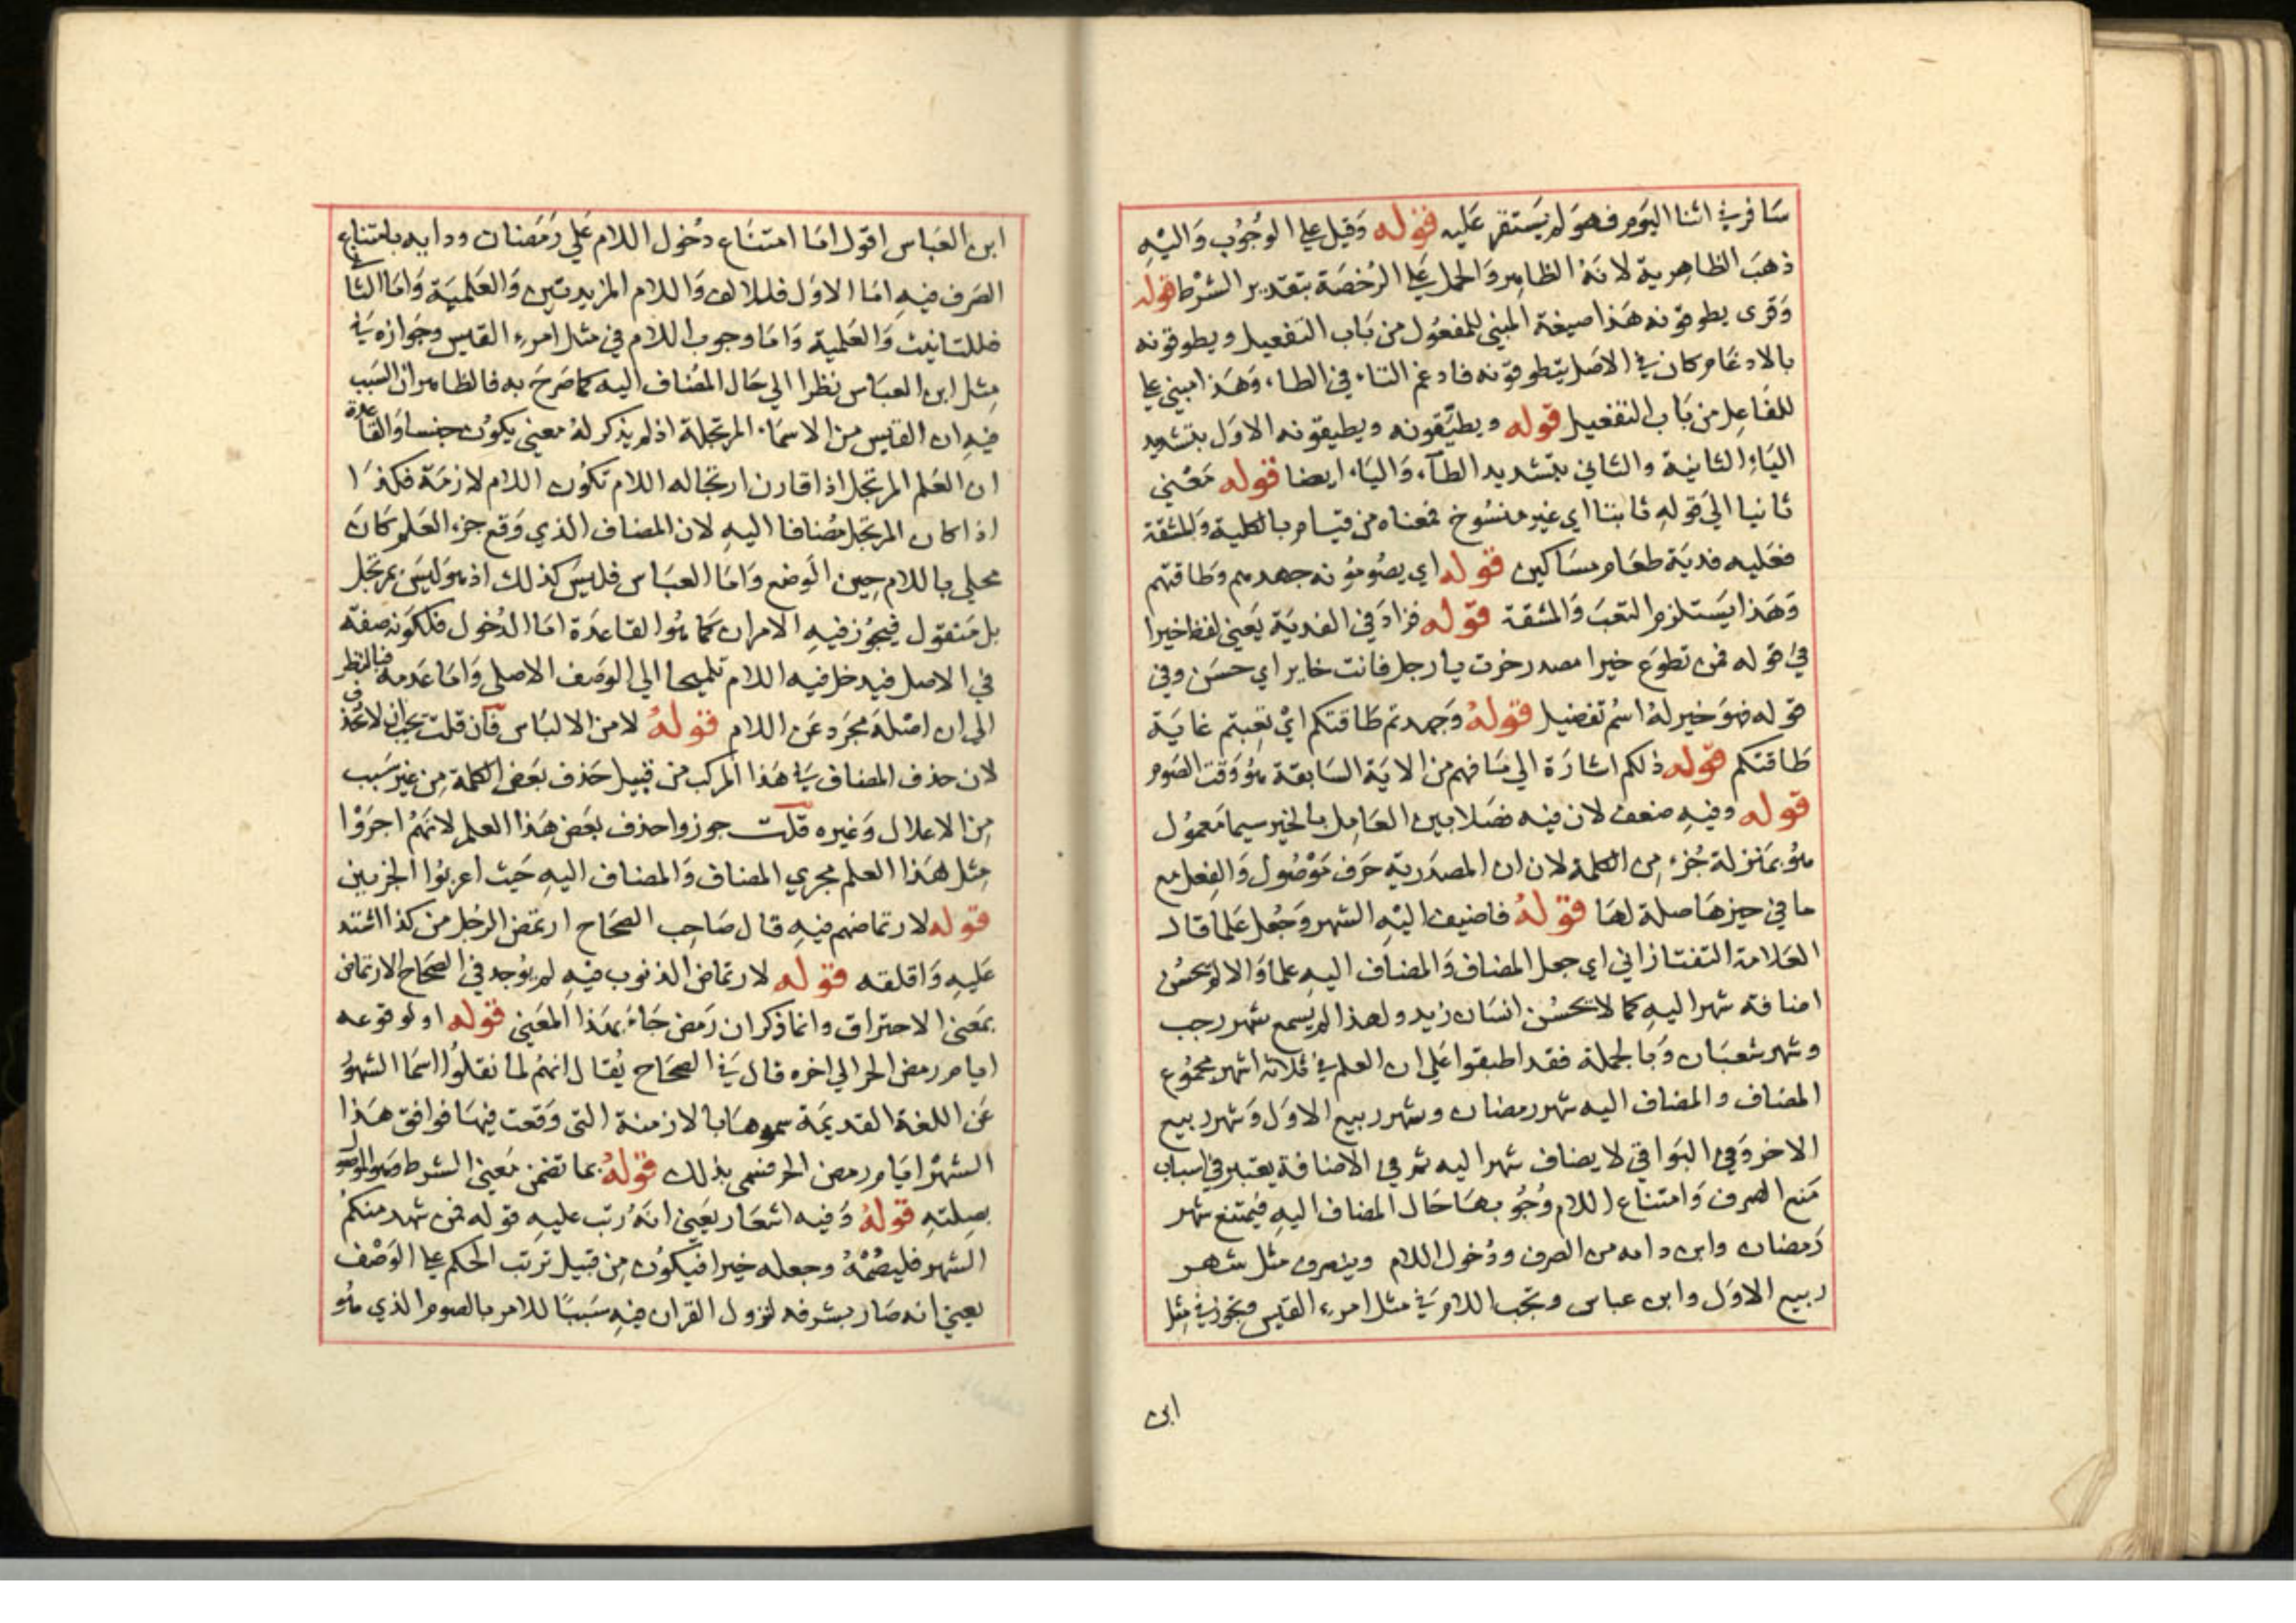 سافر في اثنا اليوم فهو لم يستقر عليه قوله وقيل على الوجوب واليه
ذهب الظاهرية لانه الظاهر والحمل على الرخصة بتقدير الشرط قوله
وقرى يطوقونه هذا صيغة المبني للمفعول من باب التفعيل ويطوقونه
بالادغام وكان في الاصل يتطوقونه فادغم التاء في الطاء وهذا مبني على
للفاعل من باب التفعيل قوله ويطيقونه ويطيقونه الاول بتشديد
الياء الثانية والثاني بتشديد الطاء والياء ايضا قوله معنى
ثانيا الى قوله ثابتا اي غير منسوخ فمعناه من قيام بالكلية والمشقة
فعليه فدية طعام مساكين قوله اي يصومونه جهدهم وطاقتهم
وهذا يستلزم التعب والمشقة قوله فزاد في الفدية يعني لفظ خيرا
في قوله فمن تطوع خيرا مصدر خرت يا رجل فانت خاير اي حسن وفي
قوله فهو خير له اسم تفضيل قوله وجهدتم طاقتكم اي تعبتم غاية
طاقتكم قوله ذلكم اشارة الى ما فهم من الاية السابقة هو وقت الصوم
قوله وفيه ضعف لان فيه فصلا بين العامل بالخبر سيما معمول
هو بمنزلة جزء من الكلمة لان ان المصدرية حرف موصول والفعل مع
ما في حيزها صلة لها قوله فاضيف اليه الشهر وجعل علما قال
العلامة التفتازاني اي جعل المضاف والمضاف اليه علما والا لم يحسن
اضافة شهر اليه كما لا يحسن انسان زيد ولهذا لم يسمع شهر رجب
وشهر شعبان وبالجملة فقد اطبقوا على ان العلم في ثلاثة اشهر مجموع
المضاف والمضاف اليه شهر رمضان وشهر ربيع الاول وشهر ربيع
الاخر وفي البواقي لا يضاف شهر اليه ثم في الاضافة يعتبر في اسباب
منع الصرف وامتناع اللام وجوبها حال المضاف اليه فيمتنع شهر
رمضان وابن دايه من الصرف ودخول اللام وينصرف مثل شهر
ربيع الاول وابن عباس ويجب اللام في مثل امرء القيس ويجوز في مثل
ابن
ابن العباس اقول اما امتناع دخول اللام على رمضان ودايه بامتناع
الصرف فيه اما الاول فللالف واللام المزيدتين والعلمية واما الثا
فللتانيث والعلمية واما وجوب اللام في مثل امرء القيس وجوازه في
مثل ابن العباس نظرا الى حال المضاف اليه كما صرح به فالظاهر ان السبب
فيه ان القيس من الاسماء المرتجلة اذ لم يذكر له معنى يكون جنسا والقاعدة
ان العلم المرتجل اذا قارن ارتجاله اللام تكون اللام لازمة فكذا
اذا كان المرتجل مضافا اليه لان المضاف الذي وقع جزء العلم كان
محلى باللام حين الوضع واما العباس فليس كذلك اذ هو ليس بمرتجل
بل منقول فيجوز فيه الامران كما هو القاعدة اما الدخول فلكونه صفة
في الاصل فيدخل فيه اللام تلميحا الى الوصف الاصلي واما عدمه فبالنظر
الى ان اصله مجرد عن اللام قوله لا من الالباس فان قلت يجب ان لا يحذف
لان حذف المضاف في هذا المركب من قبيل حذف بعض الكلمة من غير سبب
من الاعلال وغيره قلت جوزوا حذف بعض هذا العلم لانهم اجروا
مثل هذا العلم مجرى المضاف والمضاف اليه حيث اعربوا الجزيين
قوله لارتماضهم فيه قال صاحب الصحاح ارتمض الرجل من كذا اشتد
عليه واقلقه قوله لارتماض الذنوب فيه لم يوجد في الصحاح الارتماض
بمعنى الاحتراق وانما ذكر ان رمض جاء بهذا المعنى قوله او لوقوعه
ايام رمض الحر الى اخره قال في الصحاح يقال انهم لما نقلوا اسما الشهو
عن اللغة القديمة سموها بالازمنة التي وقعت فيها فوافق هذا
الشهر ايام رمض الحر فسمي بذلك قوله بما تضمن معنى الشرط
بصلته قوله وفيه اشعار يعني انه رتب عليه قوله فمن شهد منكم
الشهر فليصمه وجعله خبرا فيكون من قبيل ترتب الحكم على الوصف
يعني انه صار بشرفه لنزول القران فيه سببا للامر بالصوم الذي هو